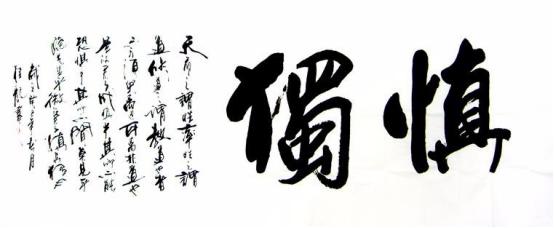 慎獨
天命之謂性率性之謂
道修道之謂教道也者
不可須臾離也可離非道也
是故君子戒慎乎其所不睹
恐懼乎其所不聞莫見乎
隱莫顯乎微故君子慎其獨也